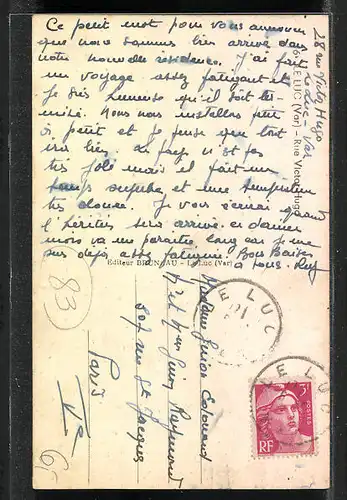 Ce petit mot pour vous annoncer
que nous sommes bien arrivé dans
notre nouvelle résidence. J'ai fait
un voyage assez fatiguant et
je suis heureuse qu'il soit ter-
miné. Nous nous installons petit
à petit et je pense que tout
ira bien. Le pays n'est pas
très joli mais il fait un
temps superbe et une température
très douce. Je vous écrirai quand
l'héritier sera arrivé. ce dernier
mois va me paraître long car je me
sens déjà assez fatiguée. Bons Baisers
à tous.
28 rue Victor Hugo
Le Luc Var
LE LUC (Var) - Rue Victor Hugo
Editeur BRUNEAU - Le Luc (Var)
83
LE LUC
LE LUC
3F
POSTES
RF
Madame
rue St Jacques
Paris
Ve